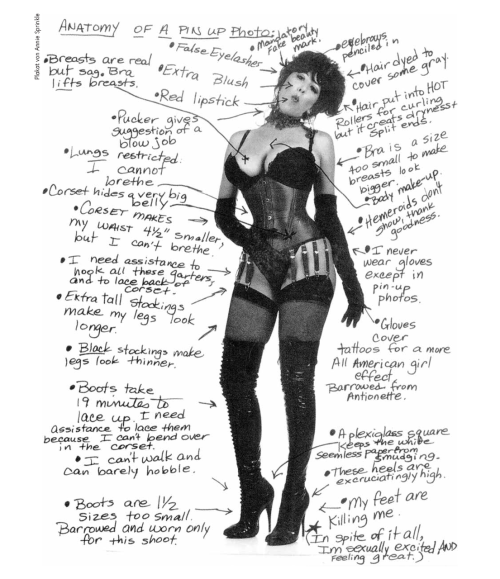 Plakat von Annie Sprinkle
ANATOMY OF A PIN UP PHOTO:
• Mandatory
Fake beauty
mark.
• False Eyelashes
• eyebrows
penciled in
• Breasts are real
but sag. Bra
lifts breasts.
• Extra Blush
• Hair dyed to
cover some gray.
• Red lipstick
• Hair put into HOT
Rollers for curling
but it creats dryness +
Split ends.
• Pucker gives
suggestion of a
blow job
• Bra is a size
too small to make
breasts look
bigger.
• Lungs restricted.
I cannot
brethe
• Body make-up.
• Corset hides a very big
belly
• Hemeroids don't
show, thank
goodness.
• CORSET MAKES
my WAIST 4½" smaller,
but I can't brethe.
• I never
wear gloves
except in
pin-up
photos.
• I need assistance to
hook all these garters,
and to lace back of
corset.
• Extra tall stockings
make my legs look
longer.
• Gloves
cover
tattoos for a more
All American girl
effect.
Barrowed from
Antionette.
• Black stockings make
legs look thinner.
• Boots take
19 minutes to
lace up. I need
assistance to lace them
because I can't bend over
in the corset.
• I can't walk and
can barely hobble.
• A plexiglass square
keeps the white
seamless paper from
smudging.
• These heels are
excruciatingly high.
• Boots are 1½
sizes too small.
Barrowed and worn only
for this shoot.
• My feet are
Killing me.
(In spite of it all,
I'm sexually excited AND
feeling great.)